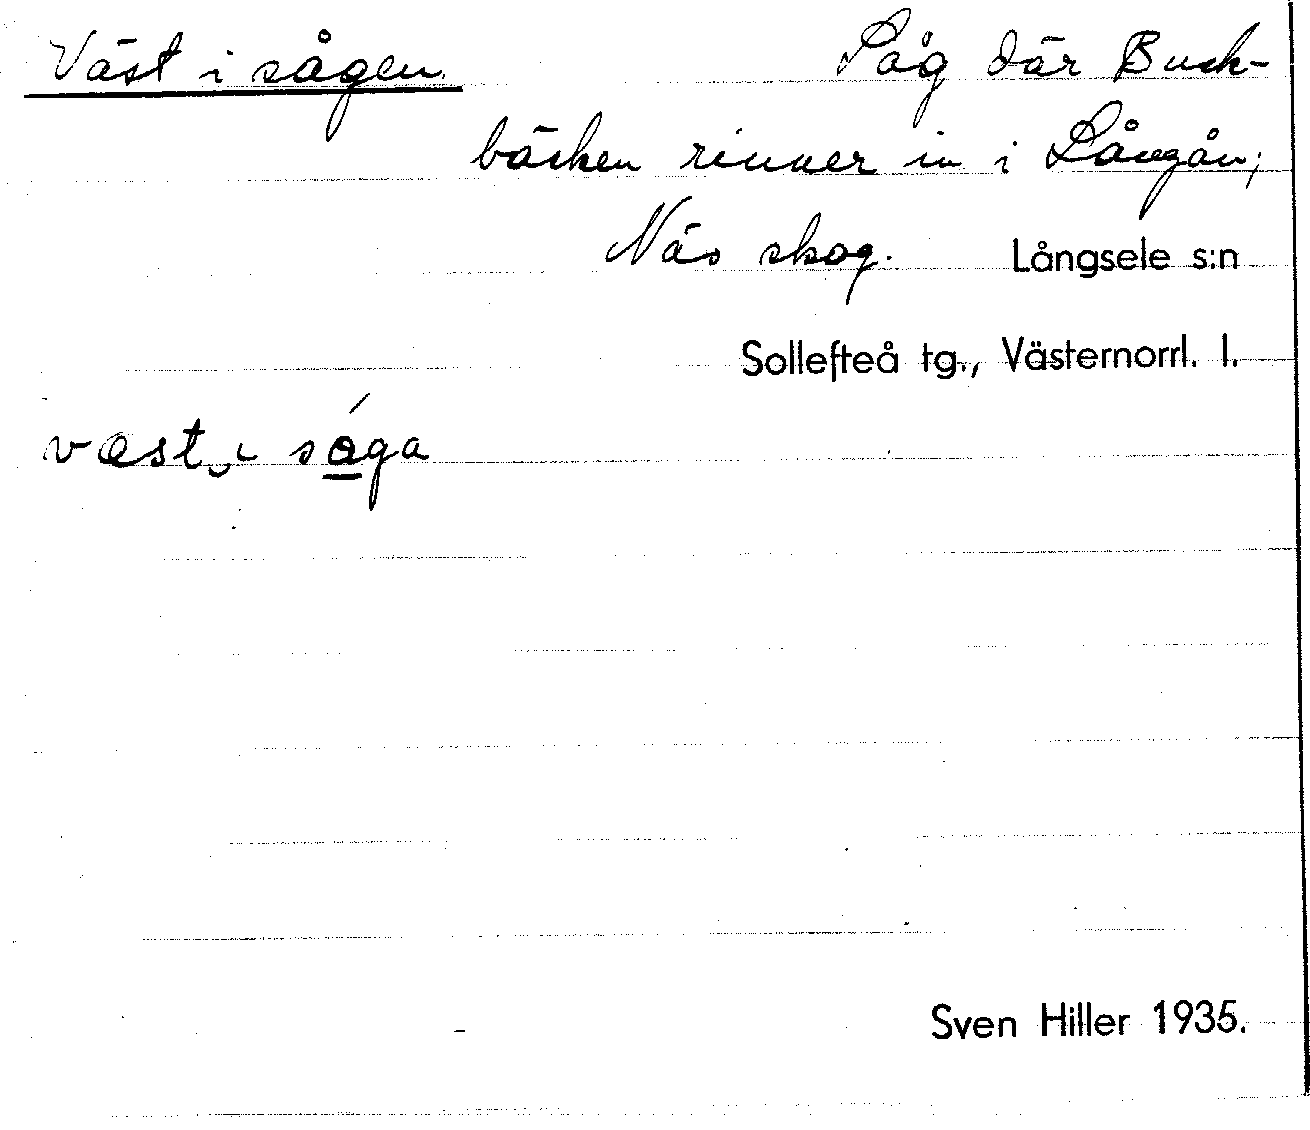 Väst i sågen. Såg där Buck-
bäcken rinner in i Långån;
Näs skog. Långsele s:n
Sollefteå tg., Västernorrl. l.
væst i såga
Sven Hiller 1935.